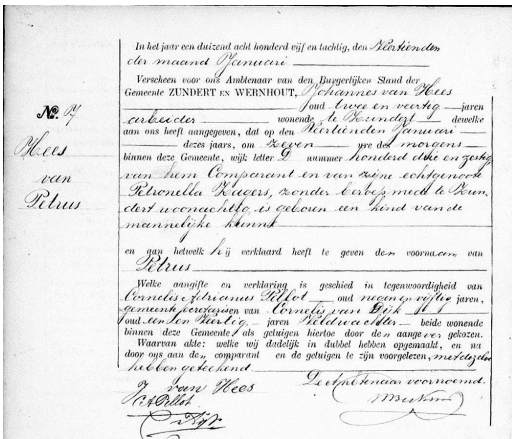 In het jaar een duizend acht honderd vijf en tachtig, den Veertienden
der maand Januari
Verscheen voor ons Ambtenaar van den Burgerlijken Stand der
Gemeente ZUNDERT EN WERNHOUT, Johannes van Hees
oud twee en veertig jaren
arbeider wonende te Zundert dewelke
aan ons heeft aangegeven, dat op den Veertienden Januari
dezes jaars, om zeven ure des morgens
binnen deze Gemeente, wijk letter D nummer honderd drie en zestig
van hem Comparant en van zijne echtgenoote
Petronella Hagers, zonder beroep, mede te Zun-
dert woonachtig, is geboren een kind van de
mannelijke kunne
en aan hetwelk hij verklaard heeft te geven den voornaam van
Petrus
Welke aangifte en verklaring is geschied in tegenwoordigheid van
Cornelis Adrianus Pellot oud negen en vijftig jaren,
gemeente secretaris en van Cornelis van Dijk
oud een en veertig jaren Veldwachter beide wonende
binnen deze Gemeente, als getuigen hiertoe door den aangever gekozen.
Waarvan akte: welke wij dadelijk in dubbel hebben opgemaakt, en na
door ons aan den comparant en de getuigen te zijn voorgelezen, met dezelve
hebben geteekend
No. 7
Hees
van
Petrus
J van Hees
CAPellot
v Dijk
De Ambtenaar voornoemd.